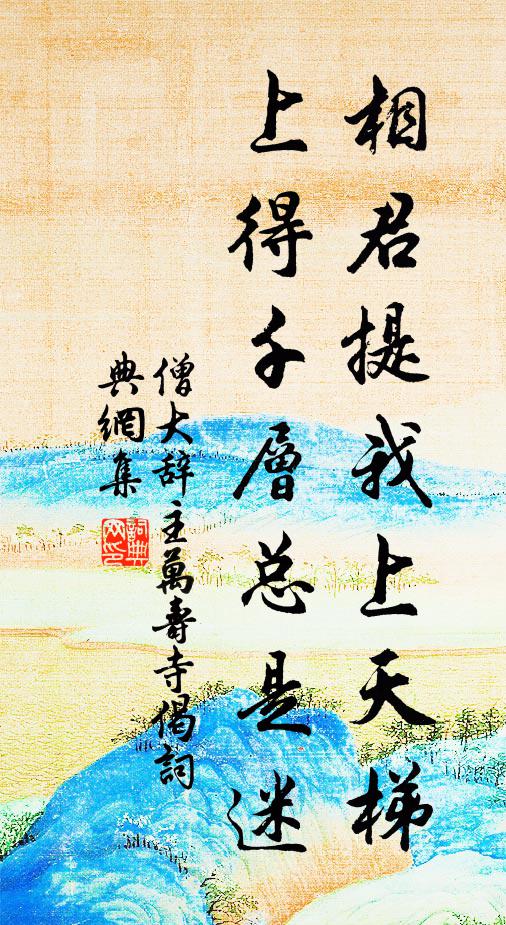 相君提我上天梯
上得千層总是迷
僧大辞主萬壽寺偈詞
典網集
詞典